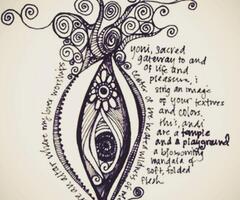 yoni, sacred
gateway to and
of life and
pleasure, i
sing an image
of your textures
and colors,
this, and i
are a temple
and a playground
a blossoming
mandala of
soft, folded
flesh
center of the
an altar where my lover worships